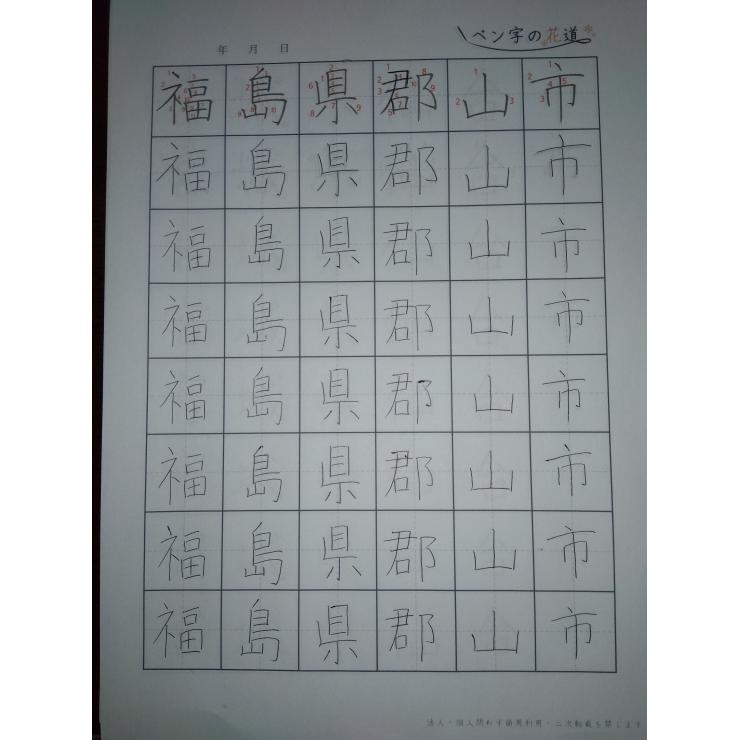 ペン字の花道
年 月 日
福島県郡山市
福島県郡山市
福島県郡山市
福島県郡山市
福島県郡山市
福島県郡山市
福島県郡山市
福島県郡山市
法人・個人問わず商用利用・二次転載を禁じます